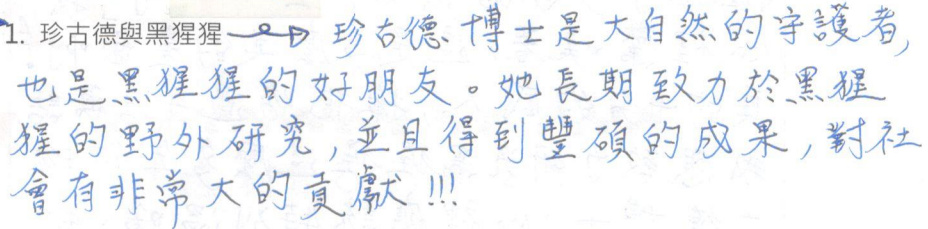 1. 珍古德與黑猩猩 珍古德博士是大自然的守護者,
也是黑猩猩的好朋友。她長期致力於黑猩
猩的野外研究,並且得到豐碩的成果,對社
會有非常大的貢獻!!!